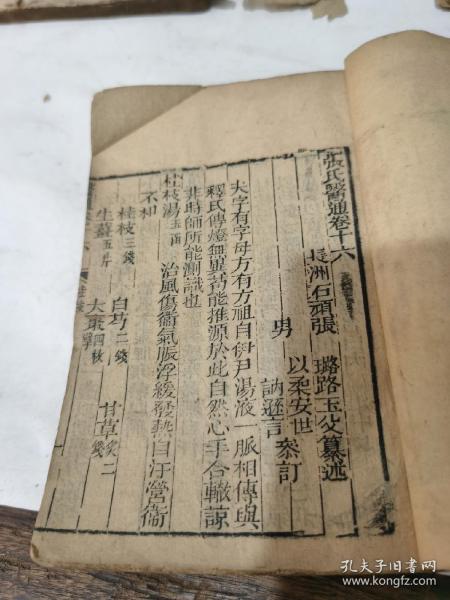 張氏醫通卷十六
長洲石頑張 璐路玉父纂述
男 以柔安世
訥遜言 叅訂
夫字有字母方有方祖自伊尹湯液一脈相傳與
釋氏傳燈無異苟能推源於此自然心手合轍諒
非時師所能測識也
桂枝湯玉函 治風傷衞氣脈浮緩發熱自汗營衞
不和
桂枝三錢 白芍二錢 甘草炙二錢
生薑五片 大棗四枚擘
孔夫子旧书网
www.kongfz.com